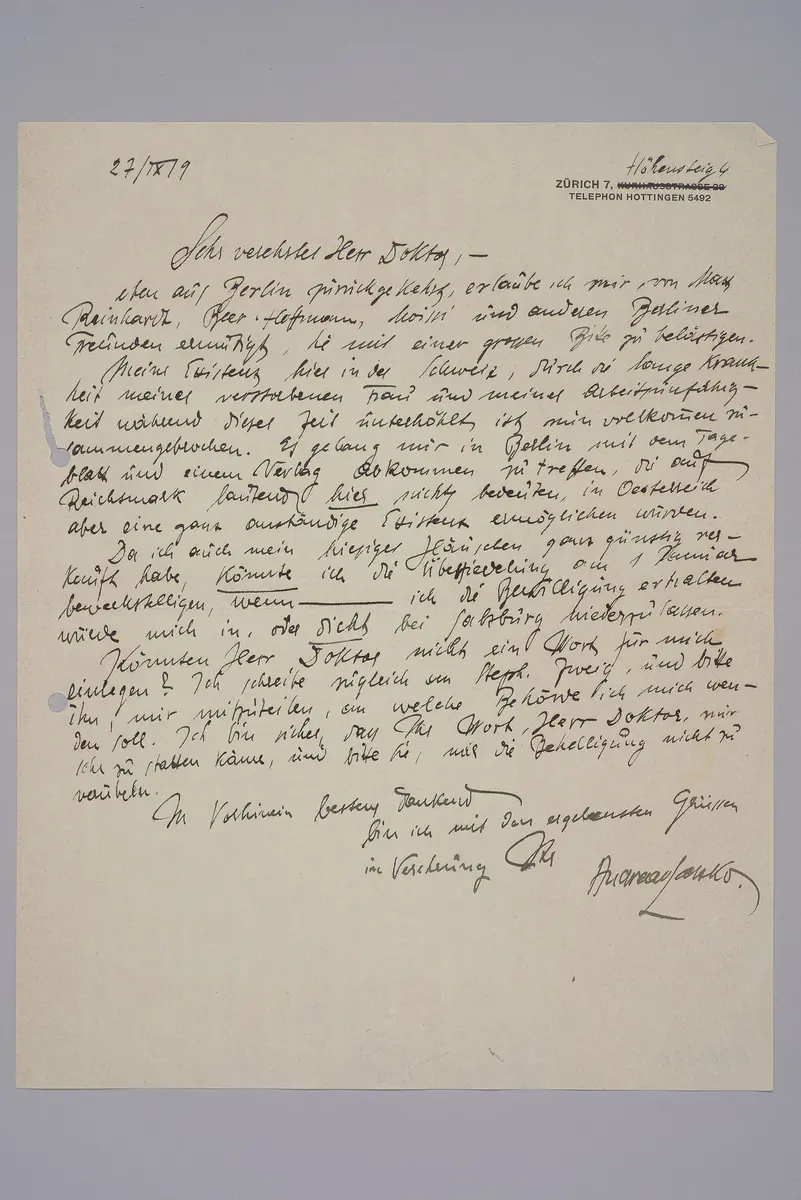 27/IX 19
Höhensteig 4
ZÜRICH 7, KURHAUSSTRASSE 22
TELEPHON HOTTINGEN 5492
Sehr verehrter Herr Doktor, —
eben aus Berlin zurückgekehrt, erlaube ich mir, von Max
Reinhardt, Beer-Hoffmann, Moissi und anderen Berliner
Freunden ermutigt, Sie mit einer grossen Bitte zu belästigen.
Meine Existenz hier in der Schweiz, durch die lange Krank-
heit meiner verstorbenen Frau und meiner Arbeitsunfähig-
keit während dieser Zeit unterhöhlt, ist nun vollkommen zu-
sammengebrochen. Es gelang mir in Berlin mit dem Tage-
blatt und einem Verlag Abkommen zu treffen, die auf
Reichsmark lautend hier nichts bedeuten, in Oesterreich
aber eine ganz anständige Existenz ermöglichen würden.
Da ich auch mein hiesiges Häuschen ganz günstig ver-
kauft habe, könnte ich die Übersiedelung am 1 Januar
bewerkstelligen, wenn — ich die Bewilligung erhalten
würde mich in, oder dicht bei Salzburg niederzulassen.
Könnten Herr Doktor nicht ein Wort für mich
einlegen? Ich schreibe zugleich an Steph. Zweig, und bitte
ihn, mir mitzuteilen, an welche Behörde ich mich wen-
den soll. Ich bin sicher, dass Ihr Wort, Herr Doktor, mir
sehr zu statten käme, und bitte Sie, mir die Behelligung nicht zu
verübeln.
Im Vorhinein bestens dankend
bin ich mit den ergebensten Grüssen
in Verehrung Ihr
Andreas Latzko.